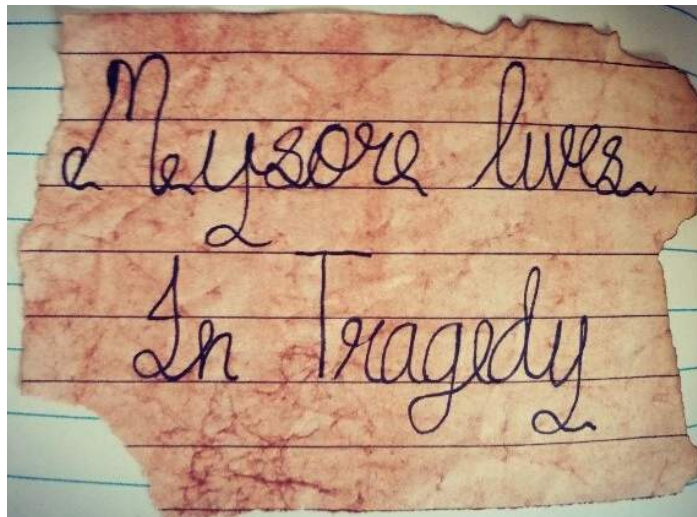 Mysore lives
In Tragedy